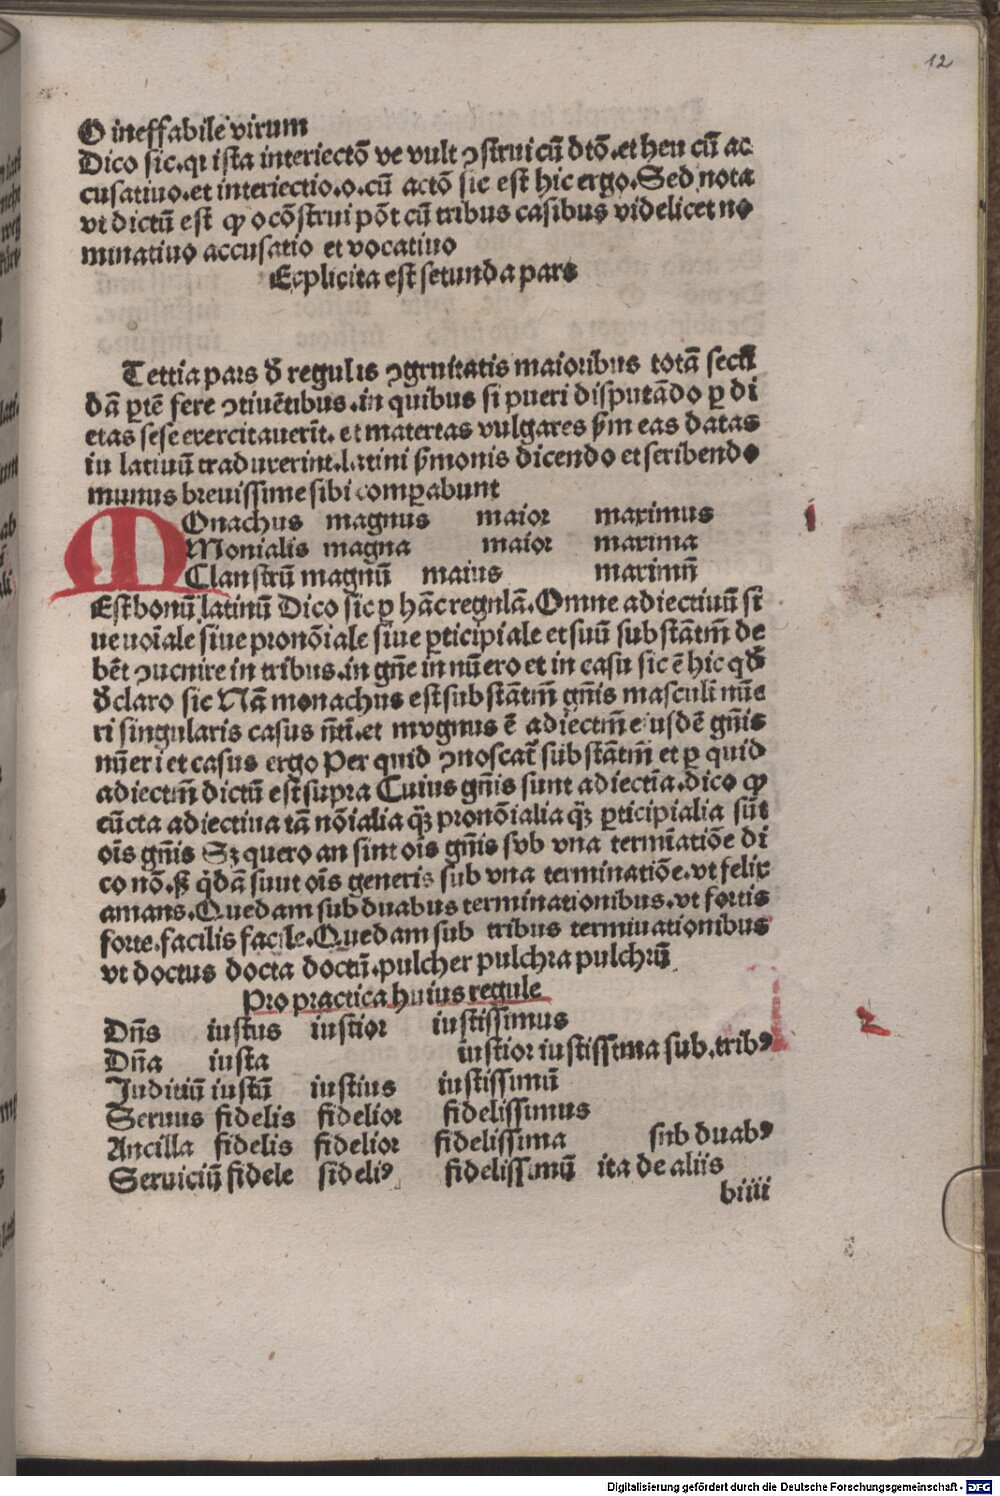 12
O ineffabile virum
Dico sic.qꝛ ista interiectō ve vult ꝯstrui cū dtō.et heu cū ac
cusatiuo.et interiectio.o.cū actō sic est hic ergo.Sed nota
vt dictū est ꝙ o cōstrui pōt cū tribus casibus videlicet no
minatiuo accusatio et vocatiuo
Explicita est setunda pars
Tettia pars đ regulis ꝯgruitatis maioribus totā secū
dā ꝑtē fere ꝯtinētibus.in quibus si pueri disputādo ꝑ di
etas sese exercitauerīt.et matertas vulgares ẜm eas datas
in latinū traduxerint.latini ẜmonis dicendo et scribendo
munus breuissime sibi comꝑabunt
MOnachus magnus maior maximus
Monialis magna maior maxima
Claustrū magnū maius maximū
i
Est bonū latinū Dico sic ꝑ hāc regulā.Omne adiectiuū si
ue noīale siue pronōiale siue ꝑticipiale et suū substātm̄ de
bēt ꝯuenire in tribus.in gn̄e in nūero et in casu sic ē hic qđ
đclaro sic Nā monachus est substātm̄ gn̄is masculi nūe
ri singularis casus n̄ti.et mognus ē adiectm̄ eiusdē gn̄is
nūeri et casus ergo Per quid ꝯnoscat̄ substātm̄ et ꝑ quid
adiectm̄ dictū est supra Cuius gn̄is sunt adiectīa.dico ꝙ
cūcta adiectiua tā nōialia qꝫ̄ pronōialia qꝫ̄ ꝑticipialia sūt
oīs gn̄is Sꝫ quero an sint oīs gn̄is svb vna termīatiōe di
co nō.ß q̄dā sunt oīs generis sub vna terminatiōe.vt felix
amans.Quedam sub duabus terminationibus.vt fortis
forte.facilis facile.Quedam sub tribus terminationibus
vt doctus docta doctū.pulcher pulchra pulchrū
Pro practica huius regule
Dn̄s iustus iustior iustissimus
2
Dn̄a iusta iustior iustissima sub.tribꝰ
Juditiū iustū iustius iustissimū
Seruus fidelis fidelior fidelissimus
Ancilla fidelis fidelior fidelissima sub duabꝰ
Seruiciū fidele fideliꝰ fidelissimū ita de aliis
biiii
Digitalisierung gefördert durch die Deutsche Forschungsgemeinschaft - DFG